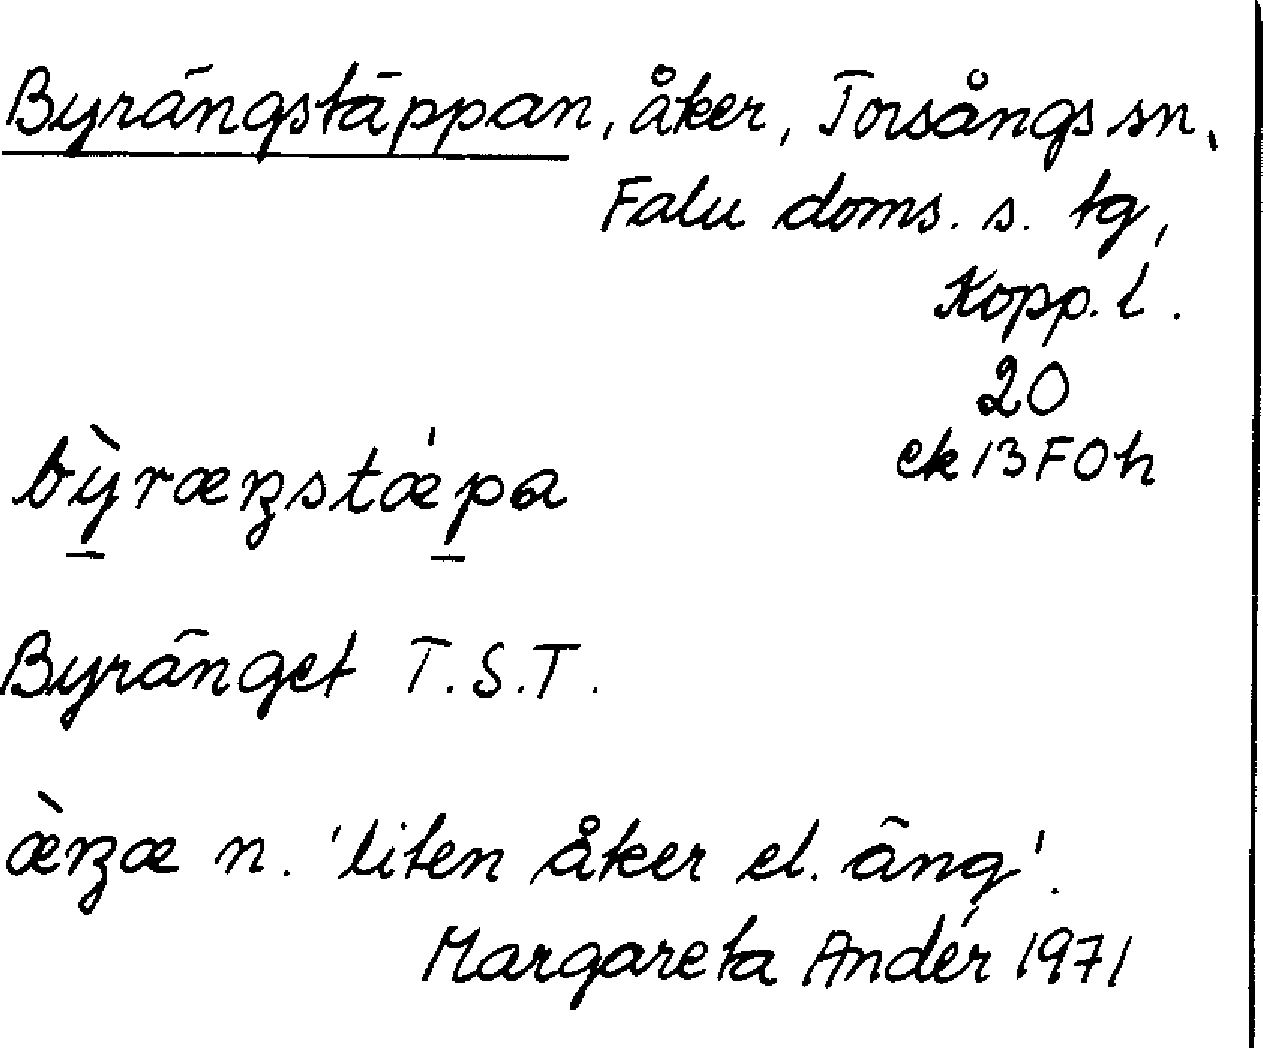 Byrängstäppan, åker, Torsångs sn,
Falu doms. s. tg,
Kopp. l.
20
ek 13 F 0 h
bỳræŋstæ̀pa
Byränget T.S.T.
æ̀ŋæ n. 'liten åker el. äng'.
Margareta Andér 1971